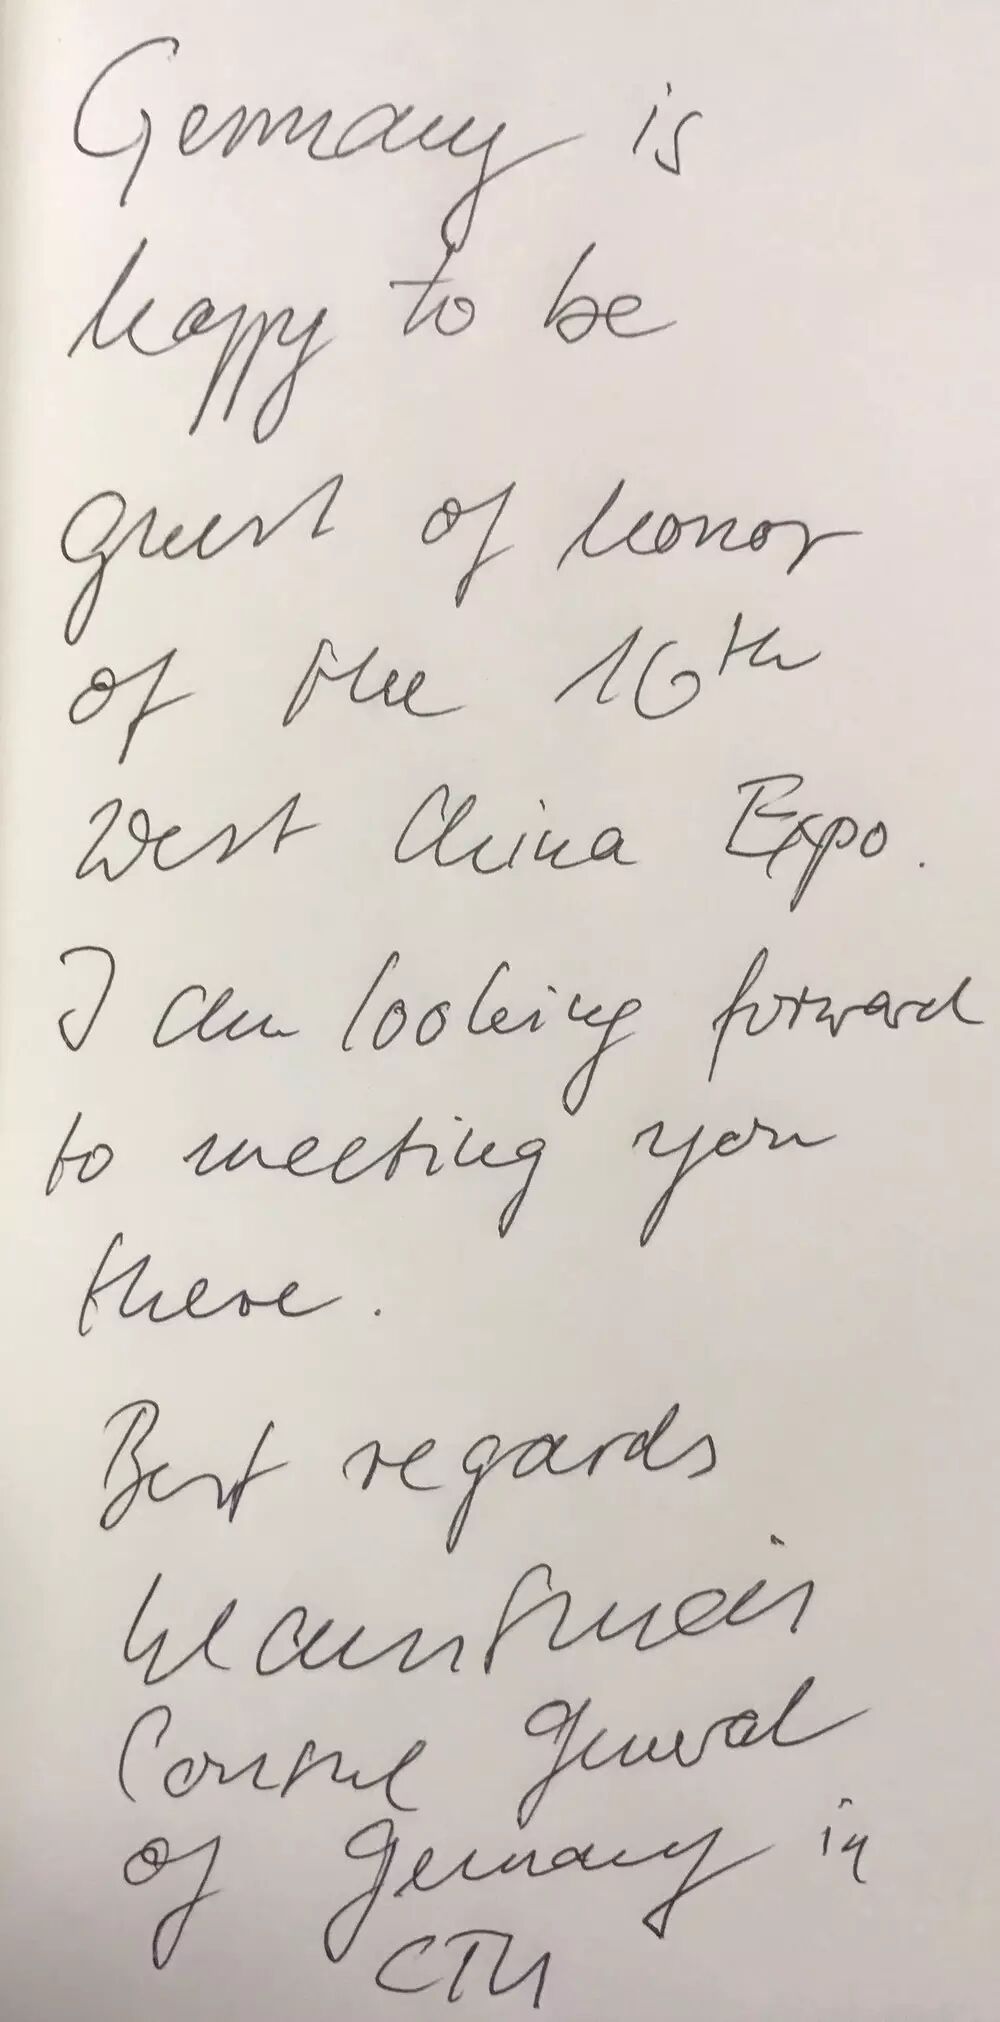 Germany is
happy to be
guest of honor
of the 16th
West China Expo.
I am looking forward
to meeting you
there.
Best regards
Consul General
of Germany in
CTU